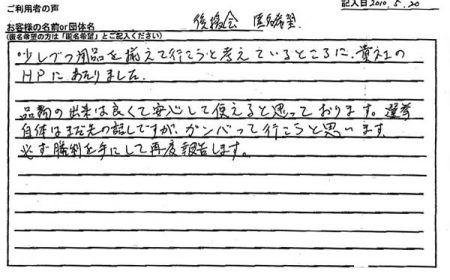 ご利用者の声
記入日2010.5.20
お客様の名前or団体名
後援会 匿名希望
(匿名希望の方は「匿名希望」とご記入ください)
少しづつ用品を揃えて行こうと考えているところに、貴社の
HPにあたりました。
品物の出来は良くて安心して使えると思っております。選挙
自体はまだ先の話しですが、ガンバって行こうと思います
必ず勝利を手にして再度報告します。